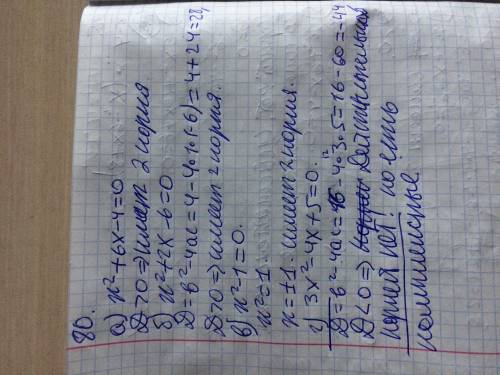 80.
а) x²+6x-4=0
D>0 => имеет 2 корня
б) x²+2x-6=0
D=в²-4ac=4-4·1·(-6)=4+24=28,
D>0 => имеет 2 корня.
в) x²-1=0.
x²=1.
x=±1. имеет 2 корня.
г) 3x²=4x+5=0.
D=в²-4ac=16-4·3·5=16-60=-44
D<0 => действительных
корней нет! но есть
комплексные